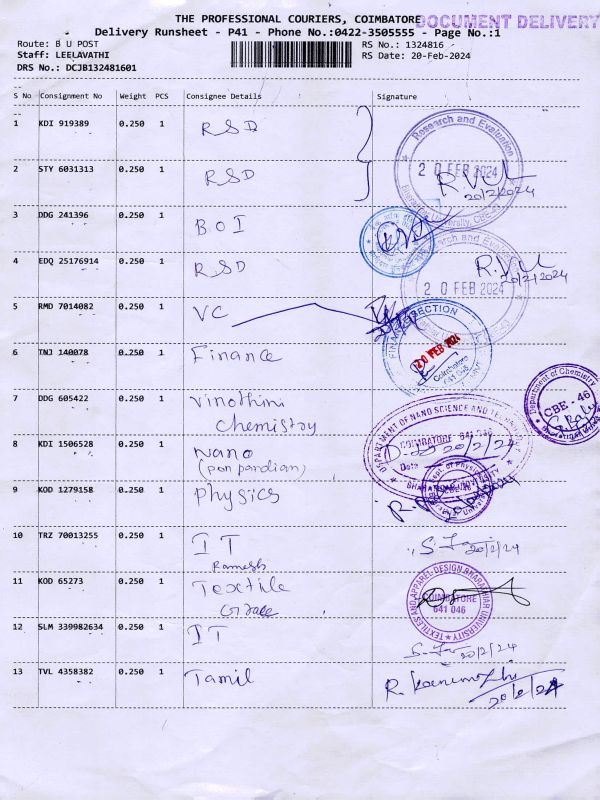 THE PROFESSIONAL COURIERS, COIMBATORE
DOCUMENT DELIVERY
Delivery Runsheet - P41 - Phone No.:0422-3505555 - Page No.:1
Route: B U POST
RS No.: 1324816
Staff: LEELAVATHI
RS Date: 20-Feb-2024
DRS No.: DCJB132481601
S No Consignment No Weight PCS Consignee Details Signature
1 KDI 919389 0.250 1 RSD
Research and Evaluation
20 FEB 2024
20/2/2024
2 STY 6031313 0.250 1 RSD
3 DDG 241396 0.250 1 BOI
4 EDQ 25176914 0.250 1 RSD
20 FEB 2024
20/2/2024
5 RMD 7014082 0.250 1 VC
6 TNJ 140078 0.250 1 Finance
20 FEB 2024
Coimbatore
641 046
7 DDG 605422 0.250 1 Vinothini
Chemistry
Department of Chemistry
CBE - 46
8 KDI 1506528 0.250 1 Nano
(pon pandian)
DEPARTMENT OF NANO SCIENCE AND TECHNOLOGY
COIMBATORE 641 046
Date
9 KOD 1279158 0.250 1 Physics
10 TRZ 70013255 0.250 1 IT
Ramesh
20/2/24
11 KOD 65273 0.250 1 Textile
TEXTILES AND APPAREL DESIGN BHARATHIAR UNIVERSITY
COIMBATORE
641 046
12 SLM 339982634 0.250 1 IT
20/2/24
13 TVL 4358382 0.250 1 Tamil
20/2/24